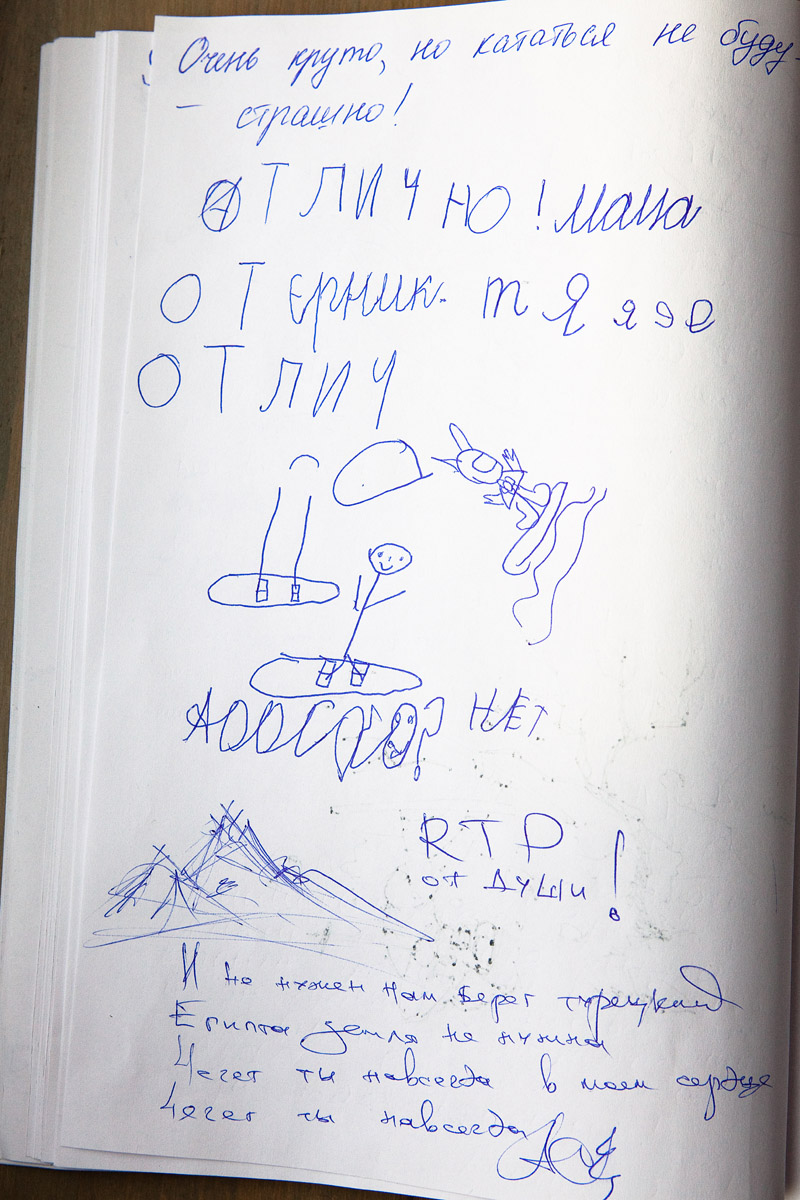 Очень круто, но кататься не буду -
- страшно!
ОТЛИЧНО! Маша
ОТ
ОТЛИЧ
НЕТ
RTP
от души!
И не нужен нам берег турецкий
Египта земля не нужна
Чегет ты навсегда в моем сердце
Чегет ты навсегда